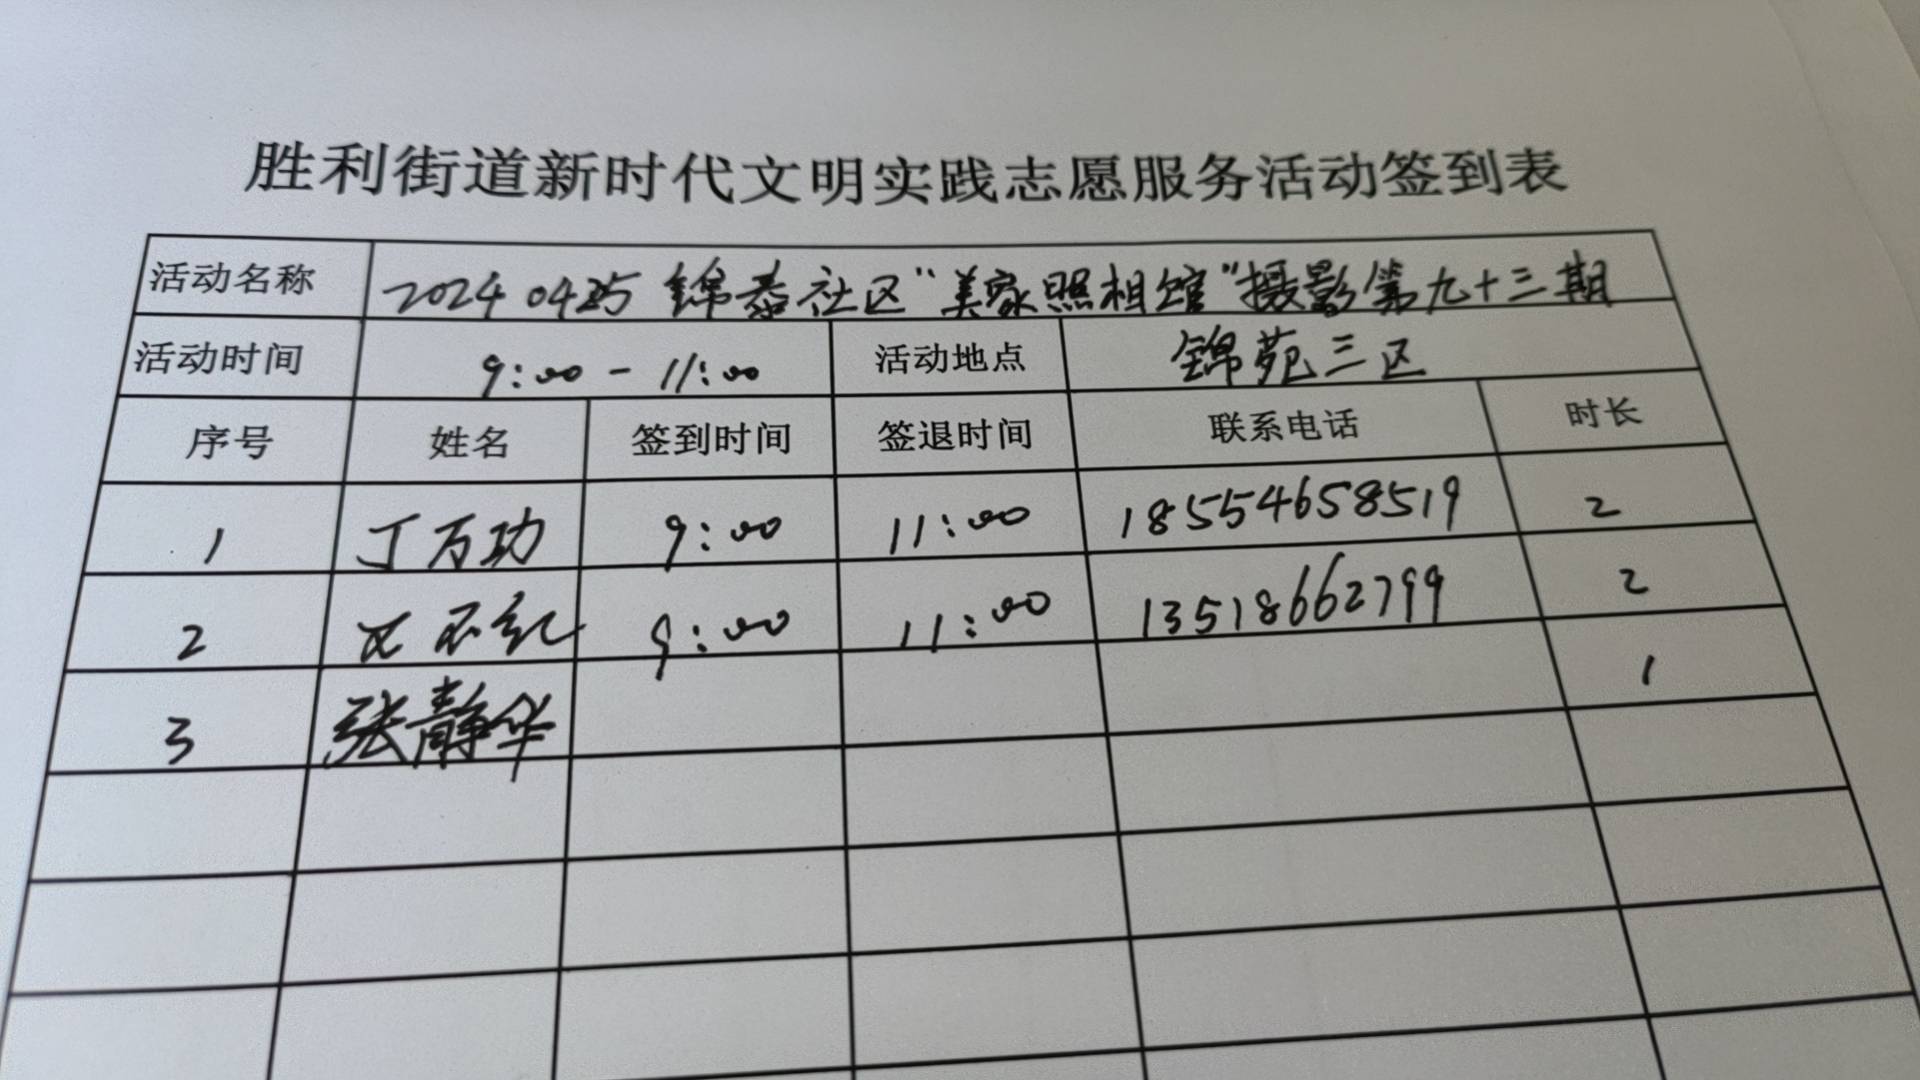 胜利街道新时代文明实践志愿服务活动签到表
活动名称 20240425 锦泰社区“美家照相馆”摄影第九十三期
活动时间 9:00 - 11:00 活动地点 锦苑三区
序号 姓名 签到时间 签退时间 联系电话 时长
1 丁万功 9:00 11:00 18554658519 2
2 9:00 11:00 13518662799 2
3 张静华 1